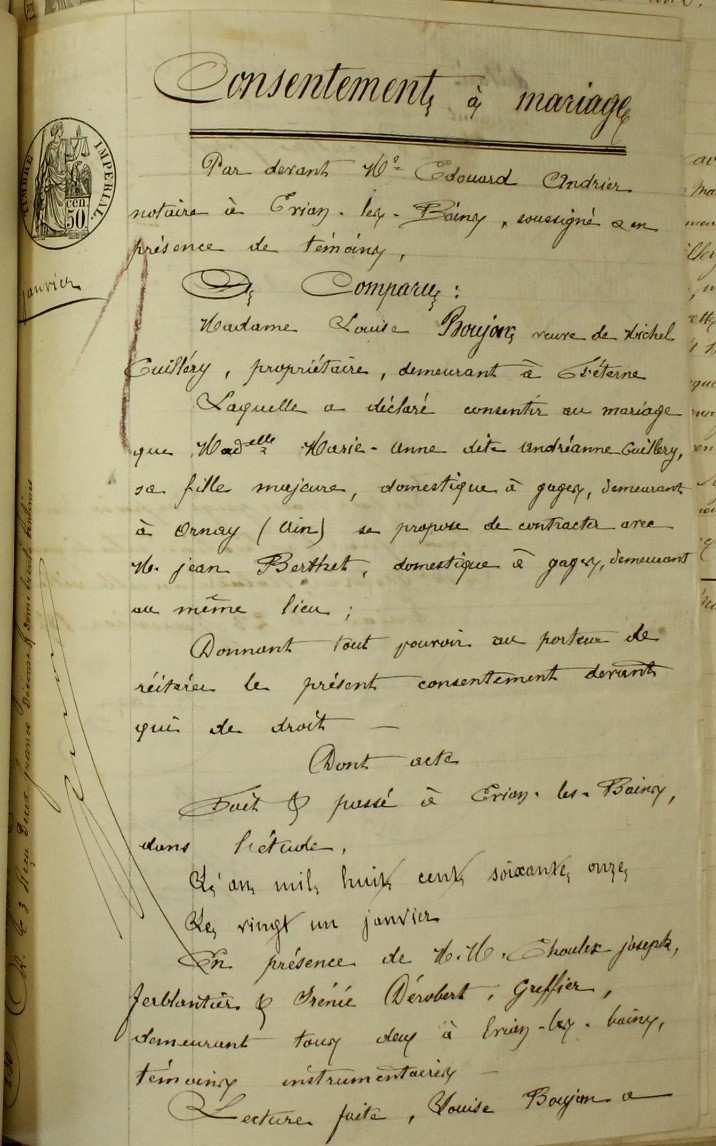 Consentement à mariage
Par devant Me Edouard Andrier
notaire à Evian-les-Bains, soussigné & en
présence de témoins,
A Comparu :
Madame Louise Boujon veuve de Michel
Cuilléry, propriétaire, demeurant à Féterne
Laquelle a déclaré consentir au mariage
que Madelle Marie-Anne dite Andréanne Cuilléry,
sa fille majeure, domestique à gages, demeurant
à Ornay (Ain) se propose de contracter avec
M. Jean Berthet, domestique à gages, demeurant
au même lieu ;
Donnant tout pouvoir au porteur de
réitérer le présent consentement devant
qui de droit —
Dont acte
Fait & passé à Evian-les-Bains,
dans l'étude,
L'an mil huit cent soixante onze,
Le vingt un janvier
En présence de M.M. Choulex joseph,
ferblantier & Irénée Dérobert, Greffier,
demeurant tous deux à Evian-les-bains,
témoins instrumentaires —
Lecture faite, Louise Boujon a
TIMBRE IMPERIAL
50 cen.
janvier